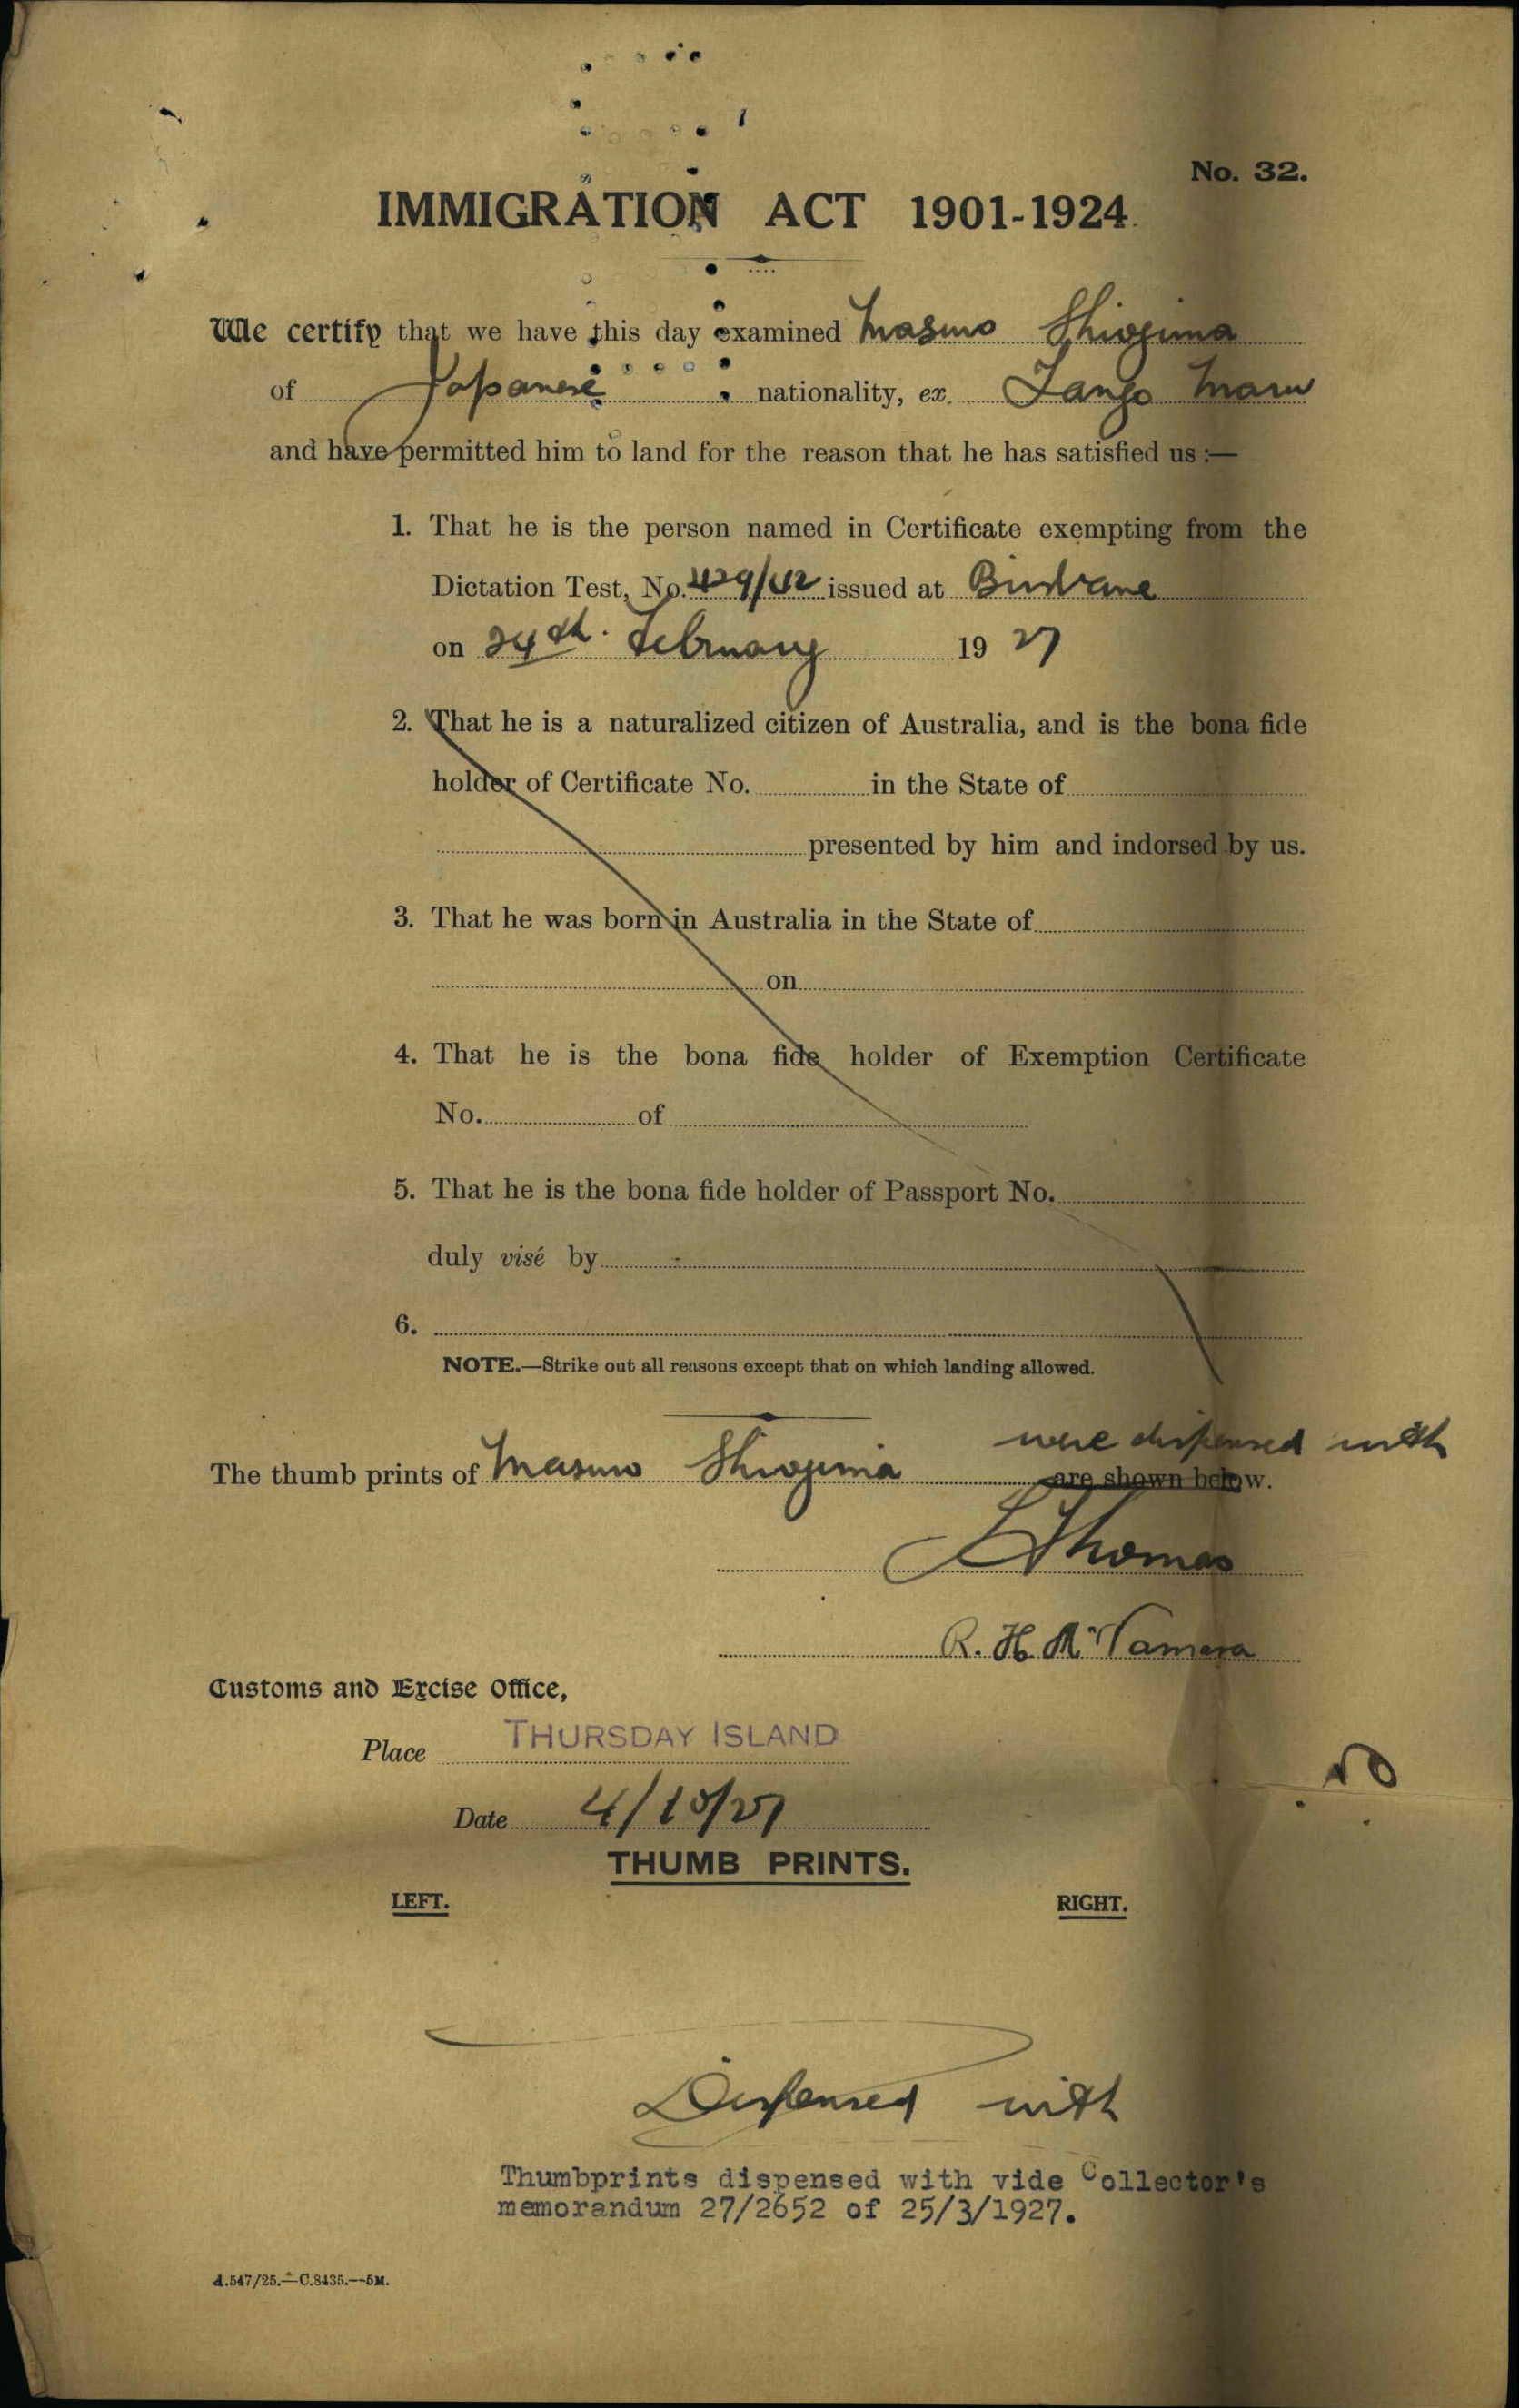 No. 32.
IMMIGRATION ACT 1901-1924.
We certify that we have this day examined Masuo Shiojima
of Japanese nationality, ex. Tango Maru
and have permitted him to land for the reason that he has satisfied us :—
1. That he is the person named in Certificate exempting from the
Dictation Test, No. 429/42 issued at Brisbane
on 24th. February 1927
2. That he is a naturalized citizen of Australia, and is the bona fide
holder of Certificate No. in the State of
presented by him and indorsed by us.
3. That he was born in Australia in the State of
on
4. That he is the bona fide holder of Exemption Certificate
No. of
5. That he is the bona fide holder of Passport No.
duly visé by
6.
NOTE.—Strike out all reasons except that on which landing allowed.
were dispensed with
The thumb prints of Masuo Shiojima are shown below.
Thomas
R. H. McNamara
Customs and Excise Office,
Place THURSDAY ISLAND
Date 4/10/27
THUMB PRINTS.
LEFT. RIGHT.
Dispensed with
Thumbprints dispensed with vide Collector's
memorandum 27/2652 of 25/3/1927.
A.547/25.—C.8435.—5M.